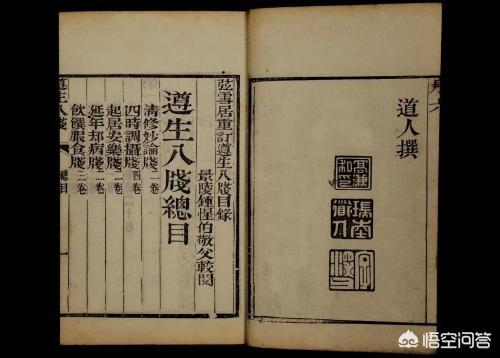 道人撰
瑞南道人
弦雪居重訂遵生八牋目錄
景陵鍾惺伯敬父較閱
遵生八牋總目
清修妙論牋二卷
四時調攝牋四卷
起居安樂牋二卷
延年却病牋二卷
飲饌服食牋三卷
遵生八牋 總目 一
悟空问答